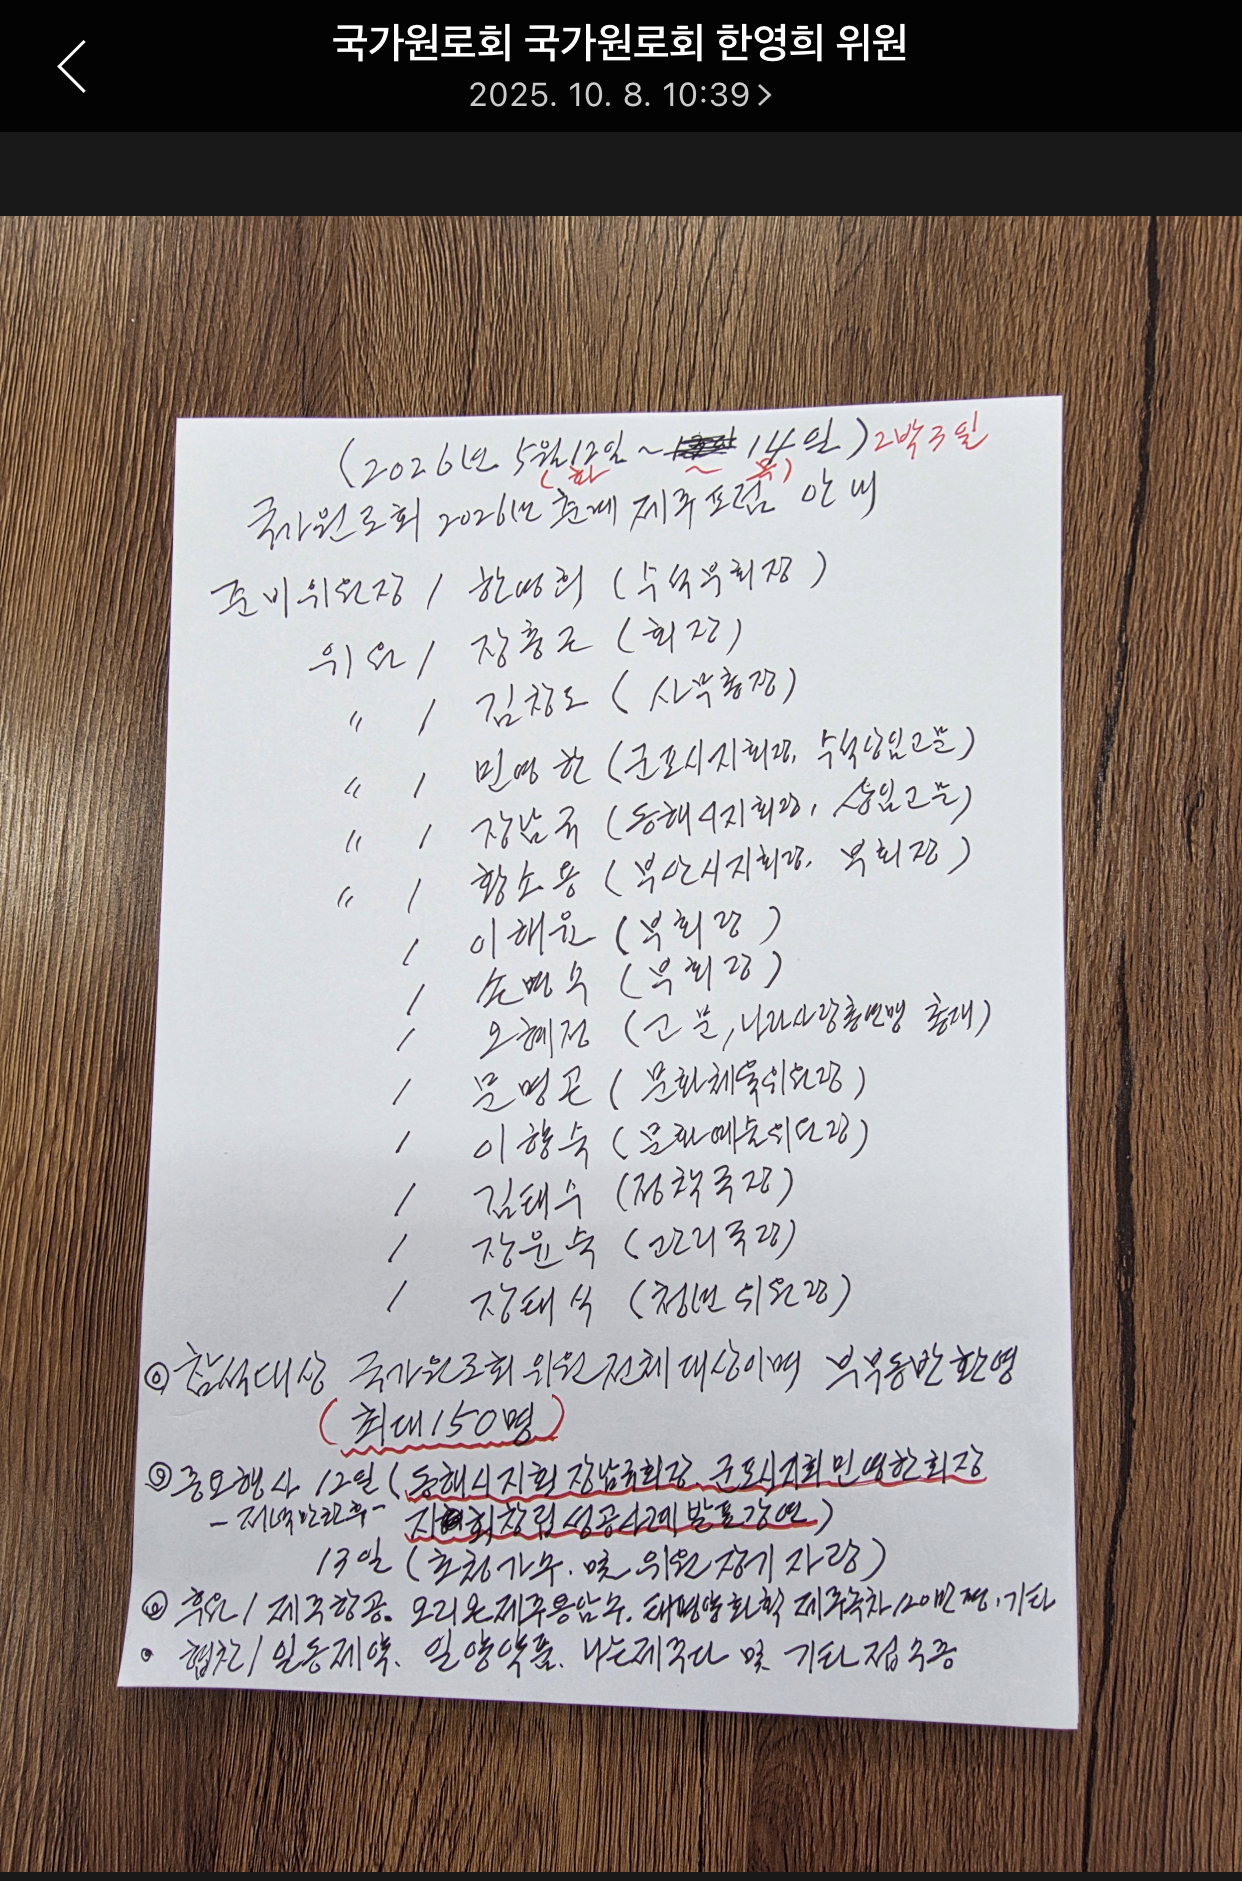 국가원로회 국가원로회 한영희 위원
2025. 10. 8. 10:39
(2026년 5월12일 ~ 14일) 2박3일
(화 ~ 목)
국가원로회 2026년 춘계 제주포럼 안내
준비위원장 / 한영희 (수석부회장)
위원 / 장흥근 (회장)
〃 / 김창도 (사무총장)
〃 / 민영한 (군포시지회장, 수석상임고문)
〃 / 장남국 (동해시지회장, 상임고문)
〃 / 황소용 (부안시지회장, 부회장)
/ 이해윤 (부회장)
/ 손병우 (부회장)
/ 오혜정 (고문, 나라사랑총연맹 총재)
/ 문명곤 (문화체육위원장)
/ 이향숙 (문화예술위원장)
/ 김태수 (정책국장)
/ 장윤숙 (관리국장)
/ 장태식 (청년위원장)
◎ 참석대상 국가원로회 위원 전체 대상이며 부부동반 환영
(최대150명)
◎ 주요행사 12일 (동해시지회 장남국회장, 군포시지회 민영한회장
- 저녁만찬후 - 지회창립성공사례발표강연)
13일 (초청가수. 및 위원장기자랑)
◎ 후원 / 제주항공. 오리온제주용암수. 태평양화학 제주녹차 120만평. 기타
• 협찬 / 일동제약. 일양약품. 나는제주다 및 기타접수중